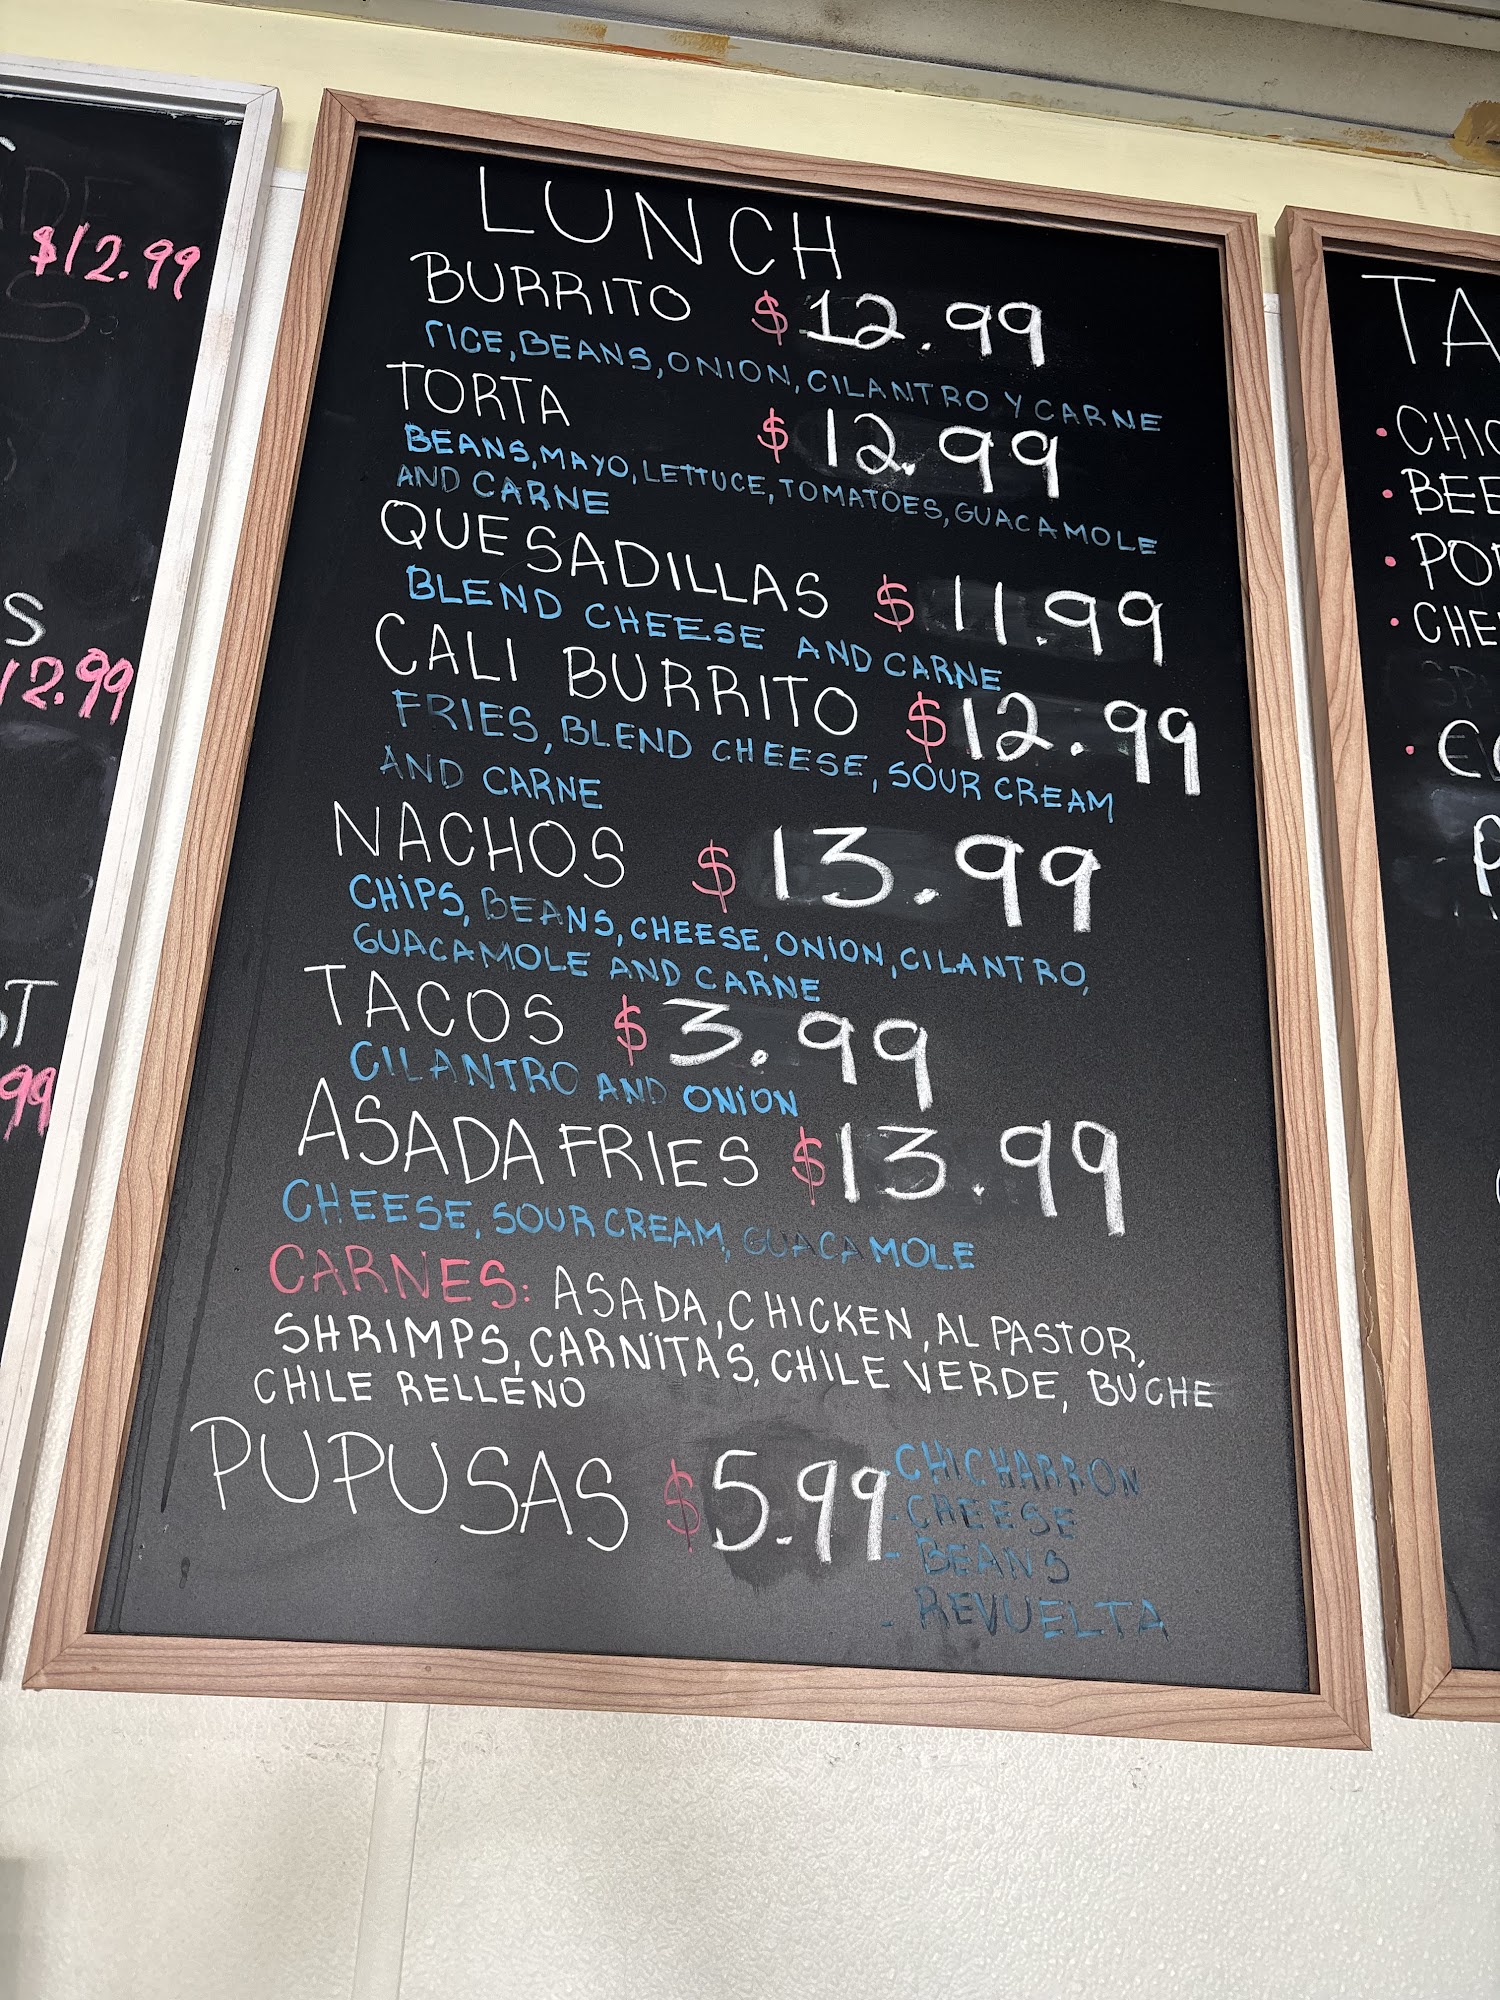 $12.99
S
12.99
T
99
LUNCH
BURRITO $12.99
RICE, BEANS, ONION, CILANTRO Y CARNE
TORTA $12.99
BEANS, MAYO, LETTUCE, TOMATOES, GUACAMOLE
AND CARNE
QUESADILLAS $11.99
BLEND CHEESE AND CARNE
CALI BURRITO $12.99
FRIES, BLEND CHEESE, SOUR CREAM
AND CARNE
NACHOS $13.99
CHIPS, BEANS, CHEESE, ONION, CILANTRO,
GUACAMOLE AND CARNE
TACOS $3.99
CILANTRO AND ONION
ASADA FRIES $13.99
CHEESE, SOUR CREAM, GUACAMOLE
CARNES: ASADA, CHICKEN, AL PASTOR,
SHRIMPS, CARNITAS, CHILE VERDE, BUCHE
CHILE RELLENO
PUPUSAS $5.99 -CHICHARRON
-CHEESE
-BEANS
-REVUELTA
TA
• CHIC
• BEE
• PO
• CHE